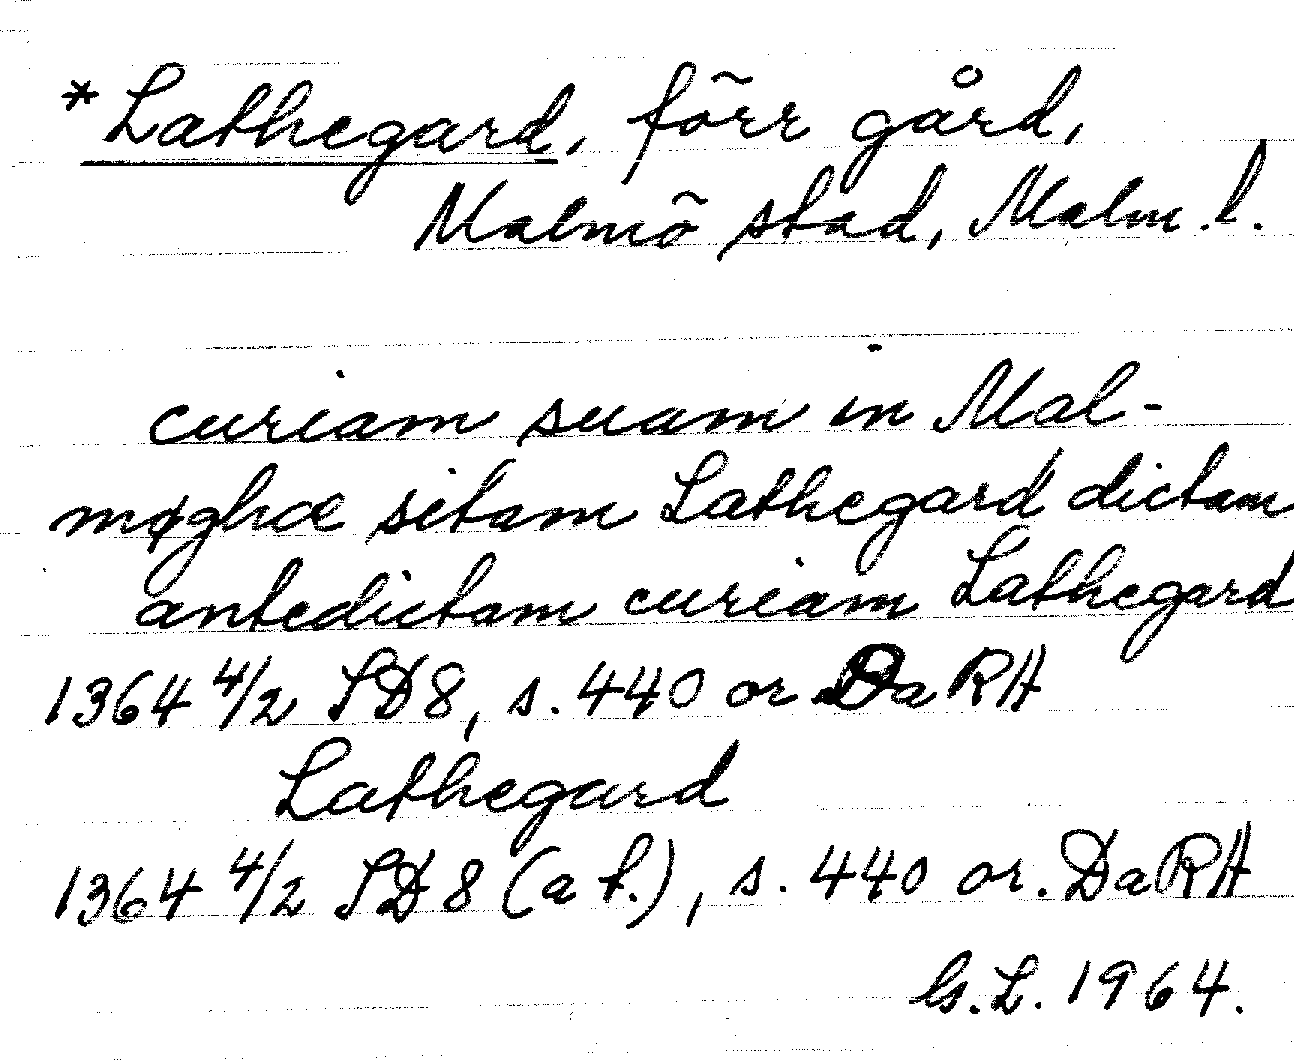 *Lathegard, förr gård,
Malmö stad, Malm. l.
curiam suam in Mal-
møghæ sitam Lathegard dictam
antedictam curiam Lathegard
1364 4/2 SD 8, s. 440 or DaRA
Lathegard
1364 4/2 SD 8 (a t.), s. 440 or. DaRA
G.L. 1964.